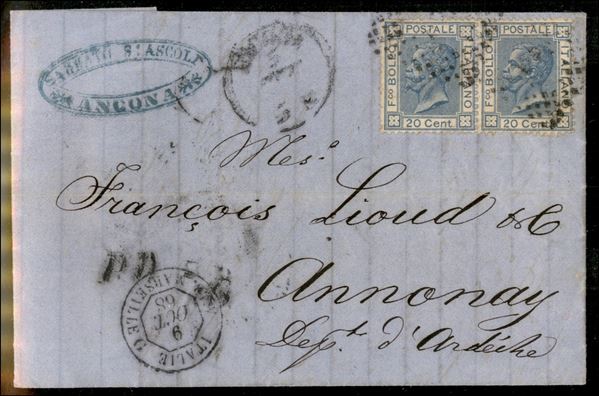 ASCOLI
ANCONA
POSTALE
ITALIANO
Fco BOLLO
20 Cent
POSTALE
ITALIANO
Fco BOLLO
20 Cent
Mes.
François Lioud & C
Annonay
Dept. d'Ardèche
P.D.
ITALIE
9
OCT
68
MARSEILLE